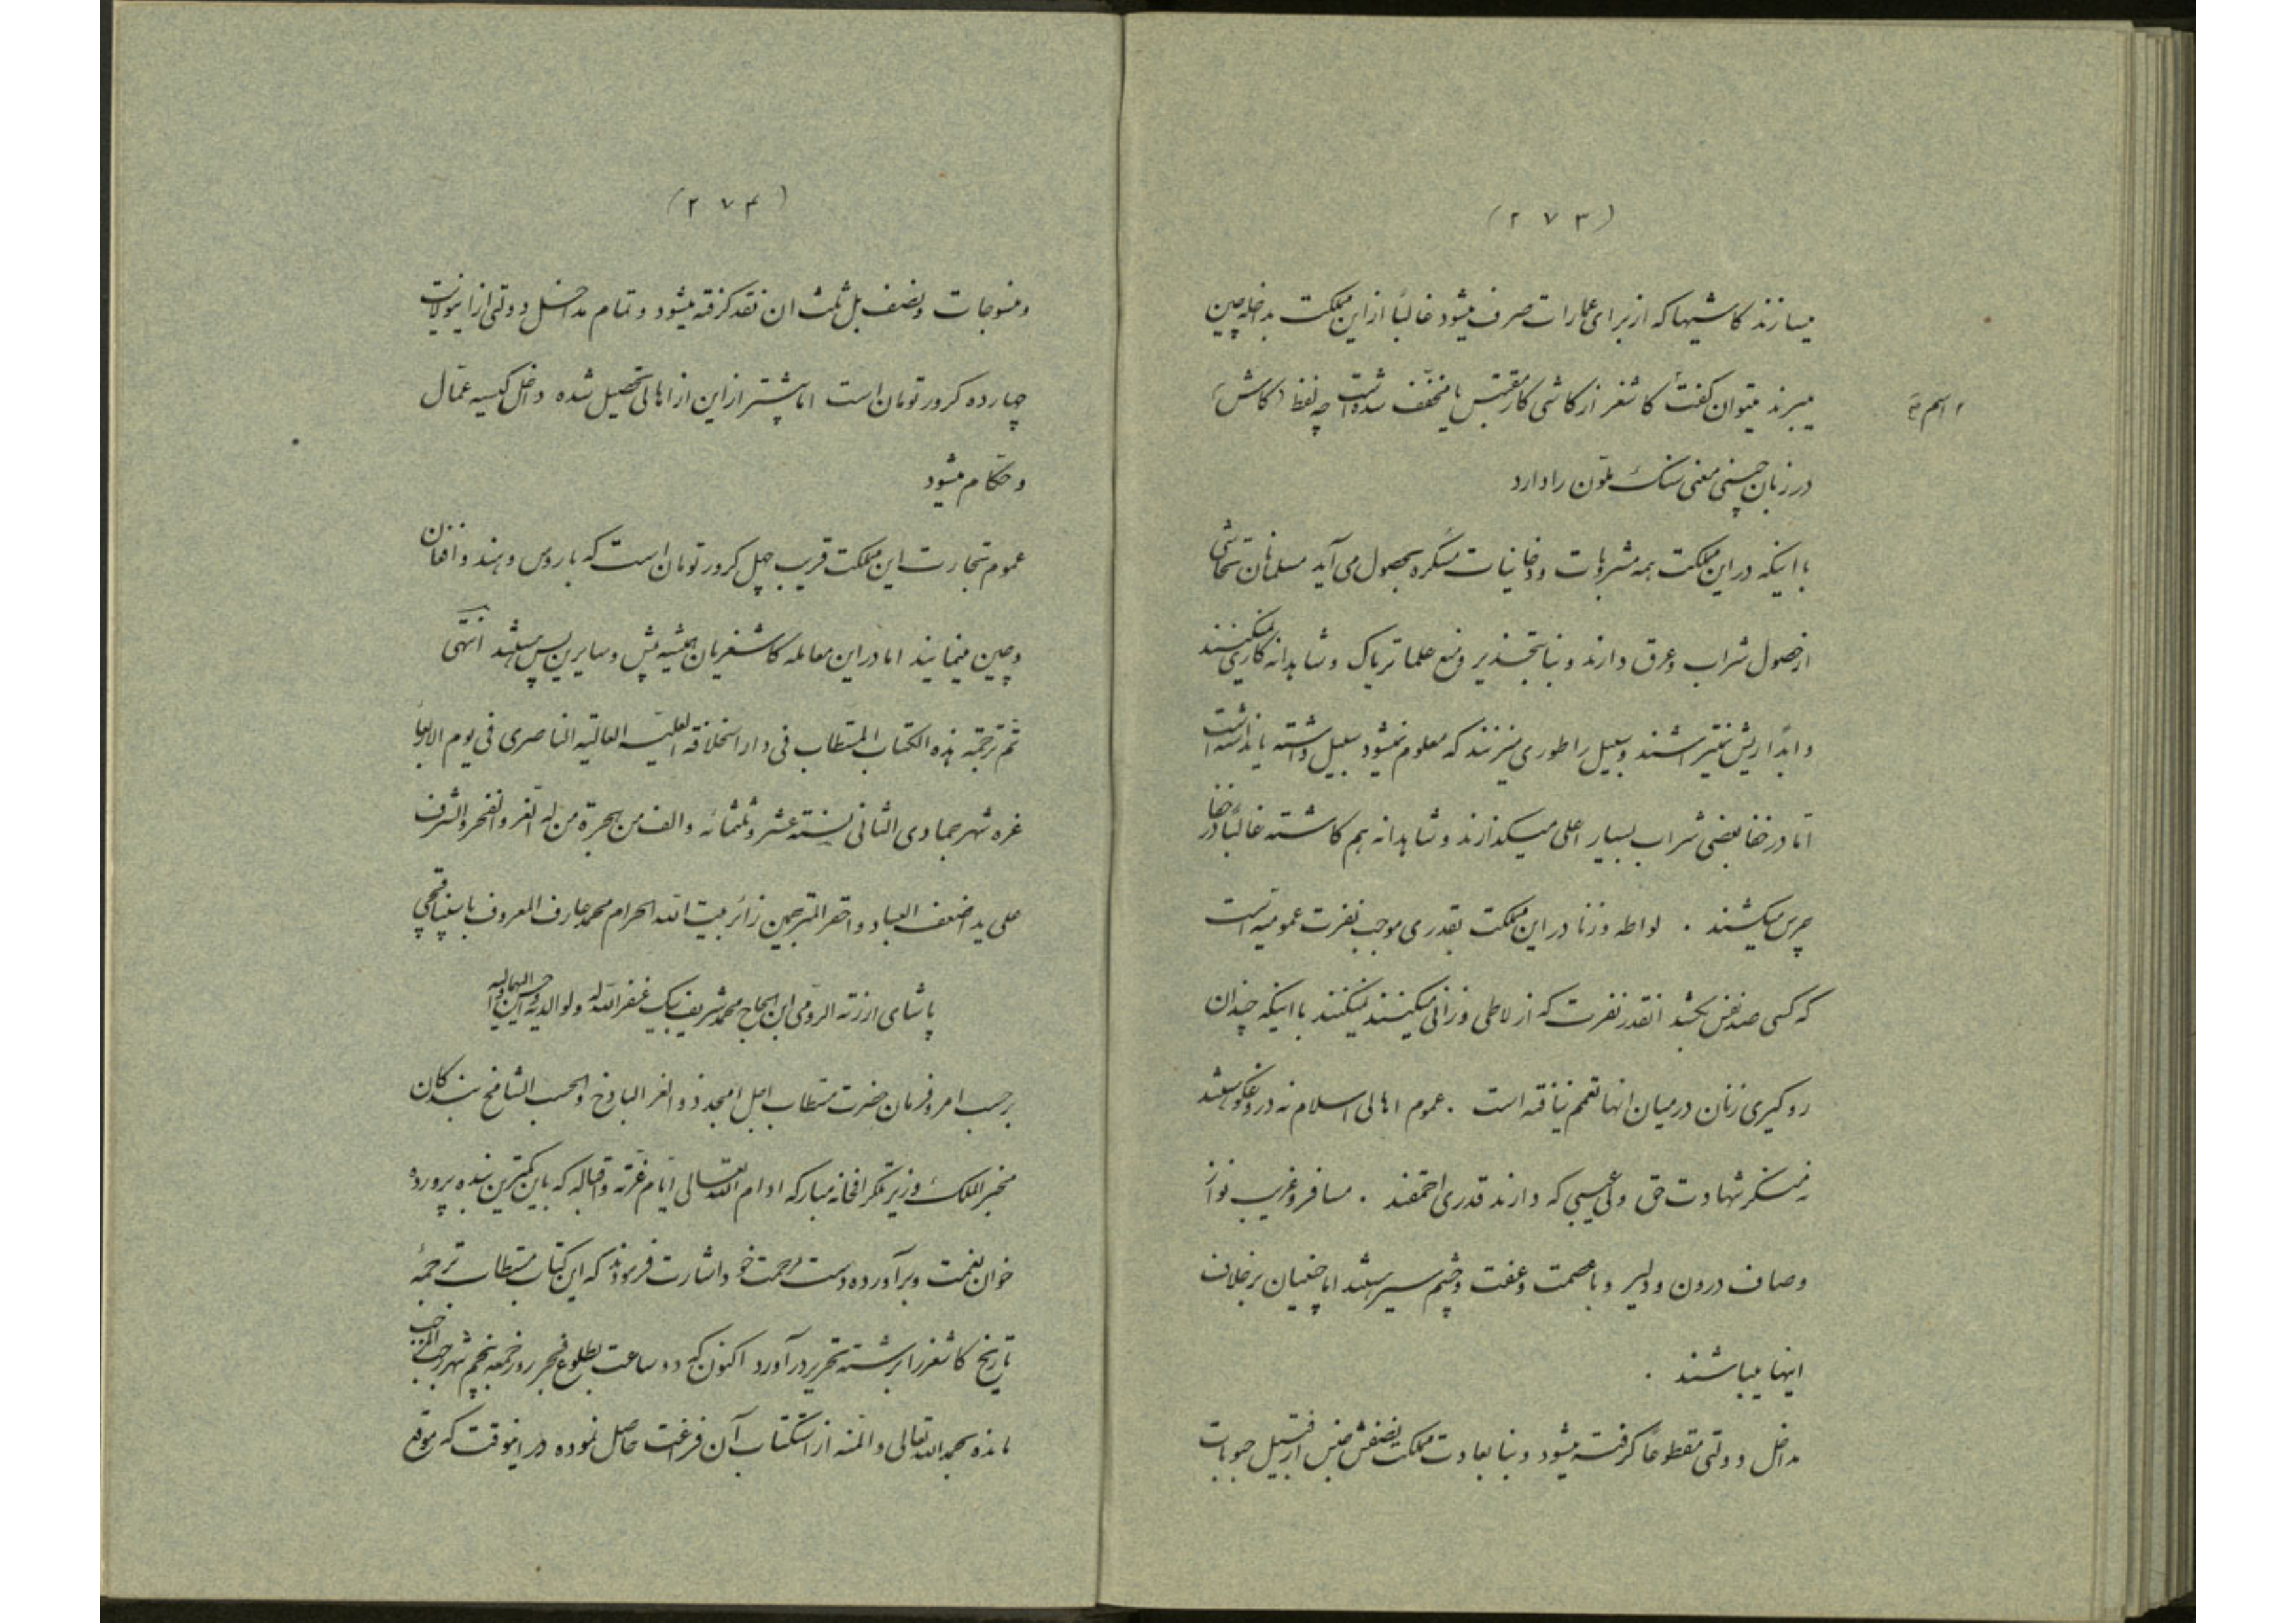 (۲۷۳)
میسازند کاشیها که از برای عمارات صرف میشود غالباً از این مملکت بداخله چین
میبرند میتوان گفت کاشغر از کاشی کار مقتبس یا مخفف شده است چه لفظ (کاش)
در زبان چینی معنی سنگ ملوّن را دارد
با اینکه در این مملکت همه مشروبات و دخانیات مسکره بحصول می‌آید مسلمانان تحاشی
از حصول شراب و عرق دارند و بنا بتحذیر و منع علما تریاک و شاهدانه کاری نمیکنند
و ابداً ریش نمیتراشند و سبیل را طوری میزنند که معلوم نمیشود سبیل داشته یا نداشته است
امّا در خفا بعضی شراب بسیار اعلی میگذارند و شاهدانه هم کاشته غالباً در خفا
چرس میکشند . لواطه و زنا در این مملکت بقدری موجب نفرت عمومیه است
که کسی صد نفس بکشد انقدر نفرت که از لاطی و زانی میکنند نمیکنند با اینکه چندان
روگیری زنان در میان انها تعمم نیافته است . عموم اهالی اسلام نه دروغگو میباشند
نه منکر شهادت حق ولی عیبی که دارند قدری احمقند . مسافر و غریب نواز
و صاف درون و دلیر و با عصمت و عفت و چشم سیر میباشند اما چینیان برخلاف
اینها میباشند .
مداخل دولتی مقطوعاً گرفته میشود و بنا بعادت مملکت نصفش جنس از قبیل حبوبات
(۲۷۴)
و منسوجات و نصف بل ثلث ان نقد گرفته میشود و تمام مداخل دولتی از این ولایت
چهارده کرور تومان است اما بیشتر از این از اهالی تحصیل شده داخل کیسه عمّال
و حکّام میشود
عموم تجارت این مملکت قریب چهل کرور تومان است که با روس و هند و افغان
و چین مینمایند اما در این معامله کاشغریان همیشه پیش و سایرین پس میباشند انتهی
تمّ ترجمة هذه الکتاب المستطاب فی دار الخلافه العلیه العالیّه الناصری فی یوم الاربعا
غره شهر جمادی الثانی لسنة عشر و ثلثمائه و الف من هجرة من له العز و الفخر و الشرف
علی ید اضعف العباد و احقر المترجمین زائر بیت الله الحرام محمد عارف المعروف باسپناقچی
پاشای ارزنة الرومی ابن الحاج محمد شریف بیک غفر الله له و لوالدیه
بر حسب امر و فرمان حضرت مستطاب اجل امجد ذو العز الباذخ و الحسب الشامخ بندگان
مخبر الملک وزیر تلگرافخانه مبارکه ادام الله تعالی ایّام عزّته و اقباله که باین کمترین بنده پرورده
خوان نعمت و برآورده دست مرحمت خود اشارت فرمودند که این کتاب مستطاب ترجمهٔ
تاریخ کاشغر را برشته تحریر درآورد اکنون که دو ساعت بطلوع فجر روز جمعه پنجم شهر رجب المرجب
مانده بحمد الله تعالی و المنه از استکتاب آن فراغت حاصل نموده در اینوقت که موقع